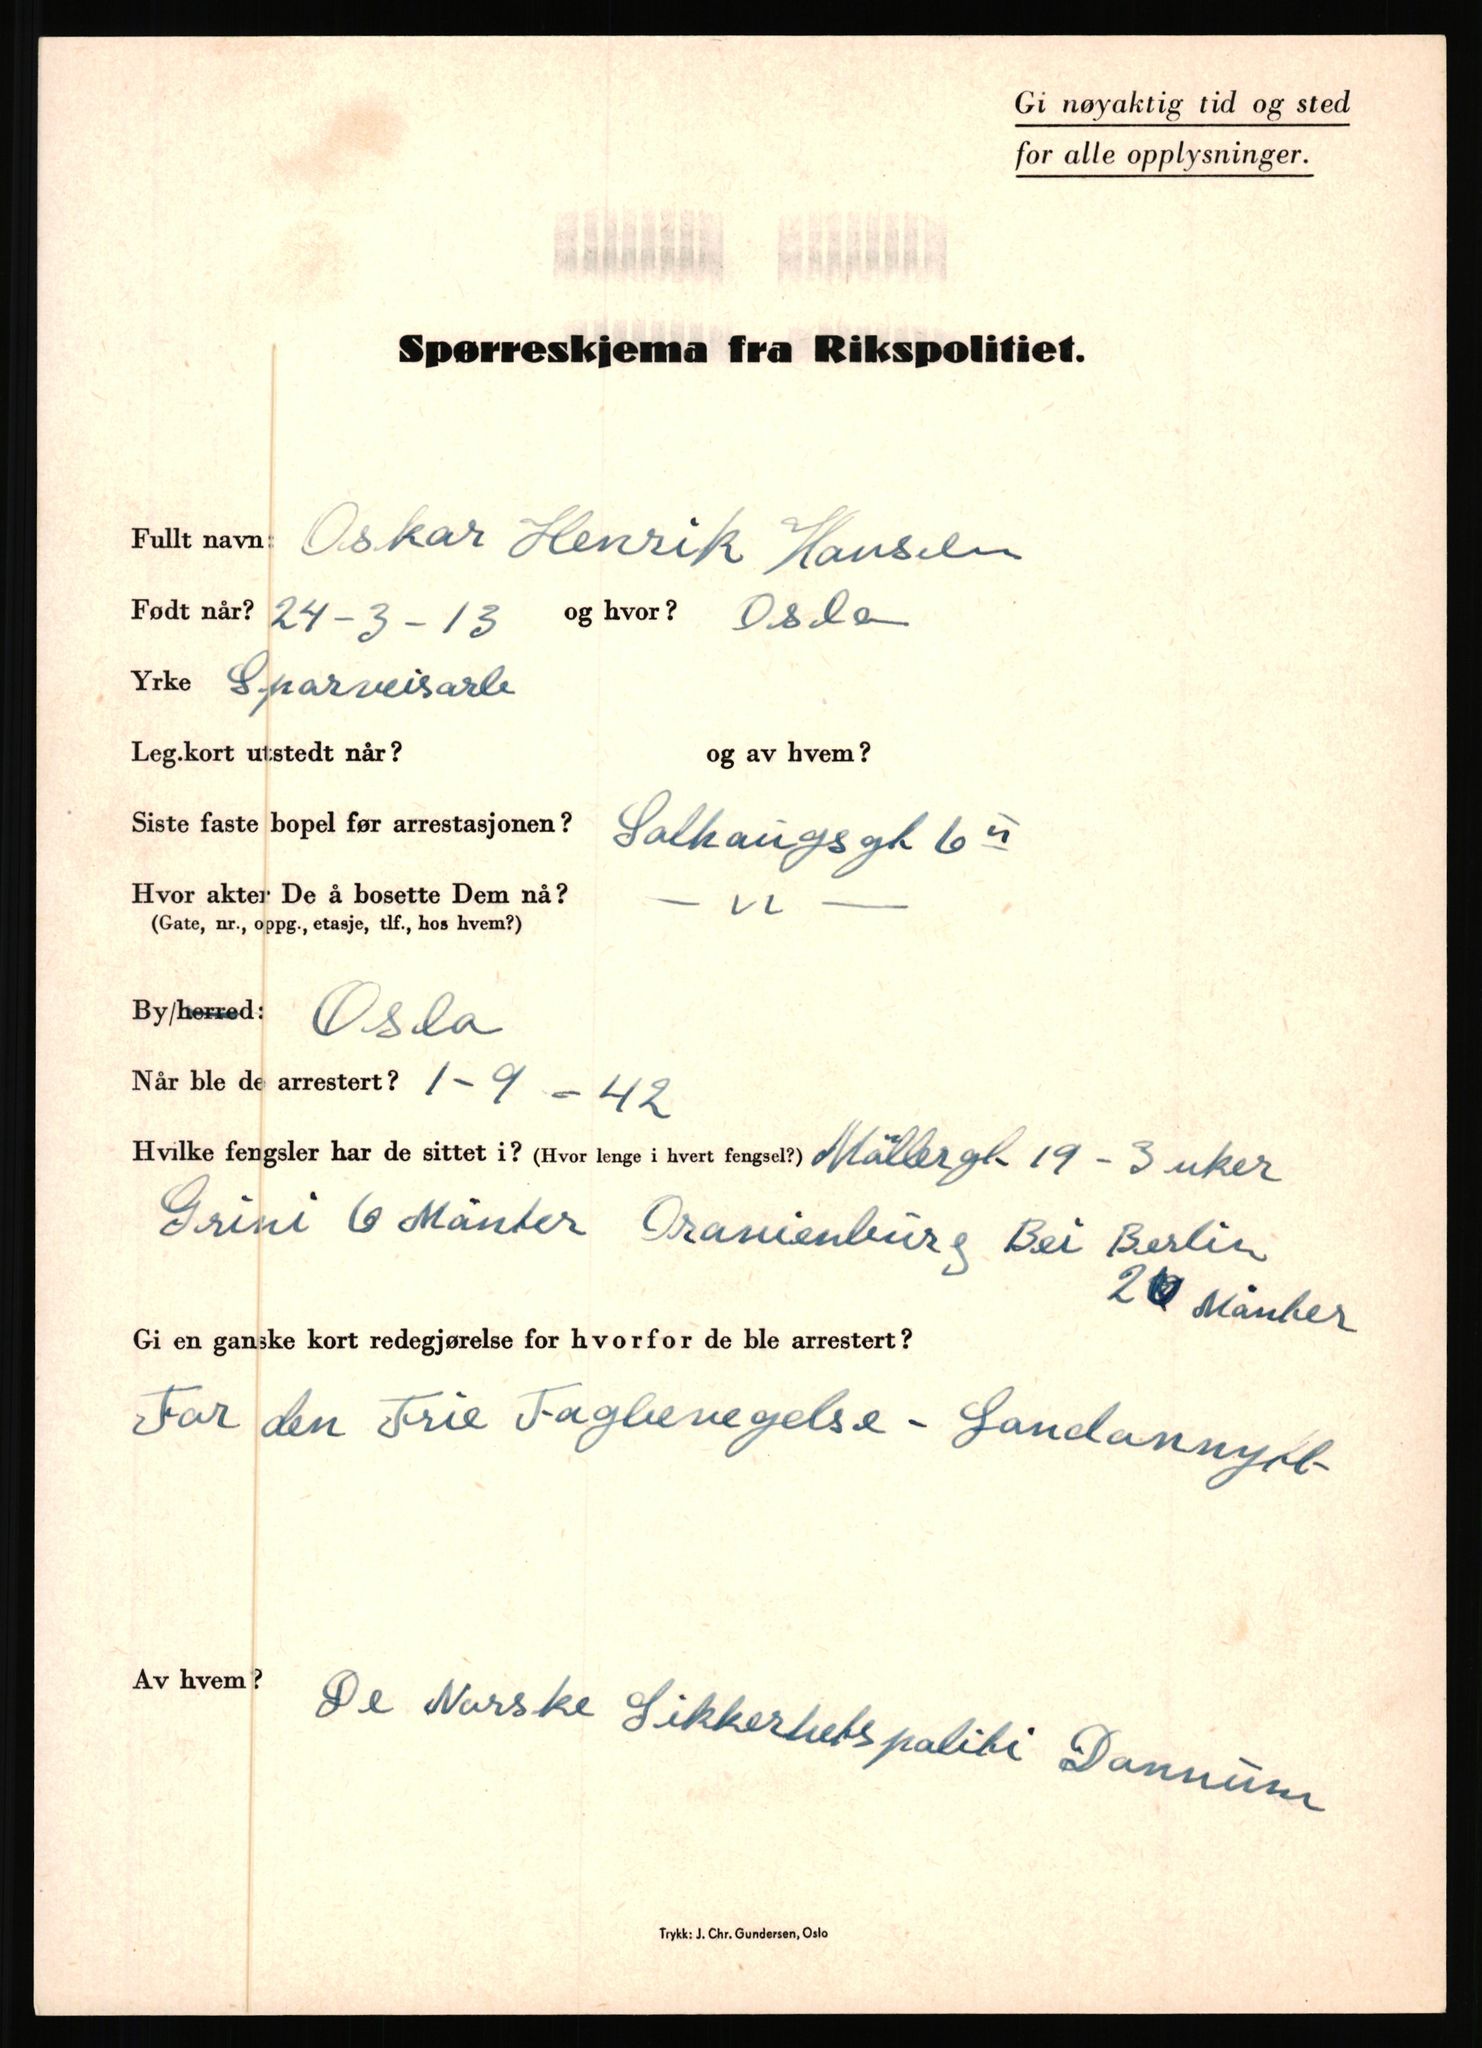 Gi nøyaktig tid og sted
for alle opplysninger.
Spørreskjema fra Rikspolitiet.
Fullt navn: Oskar Henrik Hansen
Født når? 24-3-13 og hvor? Oslo
Yrke Sporveisarb
Leg.kort utstedt når? og av hvem?
Siste faste bopel før arrestasjonen? Solhaugsgt 6 II
Hvor akter De å bosette Dem nå? — " —
(Gate, nr., oppg., etasje, tlf., hos hvem?)
By/herred: Oslo
Når ble de arrestert? 1-9-42
Hvilke fengsler har de sittet i? (Hvor lenge i hvert fengsel?) Møllergt 19 - 3 uker
Grini 6 Månter Oranienburg Bei Berlin
Månter
Gi en ganske kort redegjørelse for hvorfor de ble arrestert?
For den Frie Fagbevegelse - Londonnytt
Av hvem? De Norske Sikkerhetspoliti Donnum
Trykk: J. Chr. Gundersen, Oslo